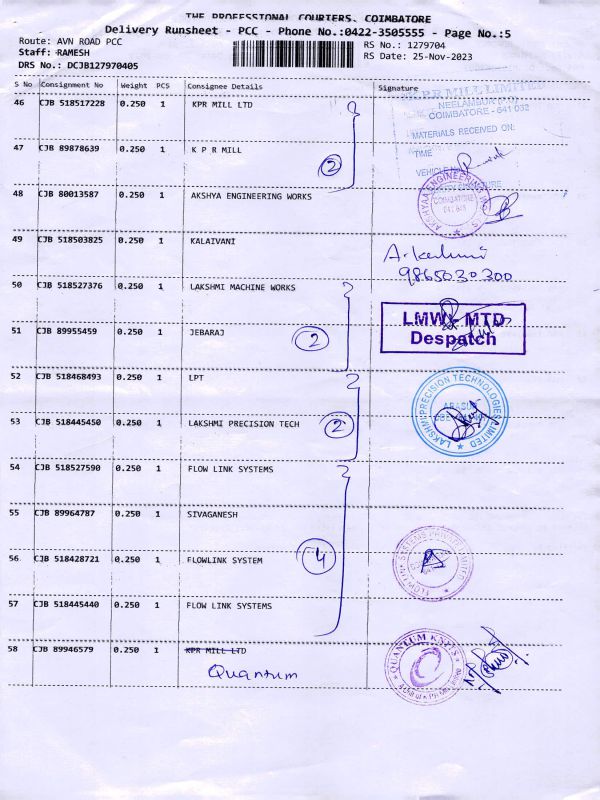 THE PROFESSIONAL COURIERS, COIMBATORE
Delivery Runsheet - PCC - Phone No.:0422-3505555 - Page No.:5
Route: AVN ROAD PCC
RS No.: 1279704
Staff: RAMESH
RS Date: 25-Nov-2023
DRS No.: DCJB127970405
S No Consignment No Weight PCS Consignee Details Signature
46 CJB 518517228 0.250 1 KPR MILL LTD
KPR MILL LIMITED
NEELAMBUR
COIMBATORE - 641 062
MATERIALS RECEIVED ON:
47 CJB 89878639 0.250 1 K P R MILL
2
TIME
VEHICLE No
48 CJB 80013587 0.250 1 AKSHYA ENGINEERING WORKS
AKSHYAA ENGINEERING
COIMBATORE
49 CJB 518503825 0.250 1 KALAIVANI
9865030300
50 CJB 518527376 0.250 1 LAKSHMI MACHINE WORKS
51 CJB 89955459 0.250 1 JEBARAJ
2
LMW - MTD
Despatch
52 CJB 518468493 0.250 1 LPT
53 CJB 518445450 0.250 1 LAKSHMI PRECISION TECH
2
LAKSHMI PRECISION TECHNOLOGIES LIMITED
54 CJB 518527590 0.250 1 FLOW LINK SYSTEMS
55 CJB 89964787 0.250 1 SIVAGANESH
56 CJB 518428721 0.250 1 FLOWLINK SYSTEM
4
FLOW LINK SYSTEMS PRIVATE LIMITED
57 CJB 518445440 0.250 1 FLOW LINK SYSTEMS
58 CJB 89946579 0.250 1 KPR MILL LTD
Quantum
QUANTUM KNITS